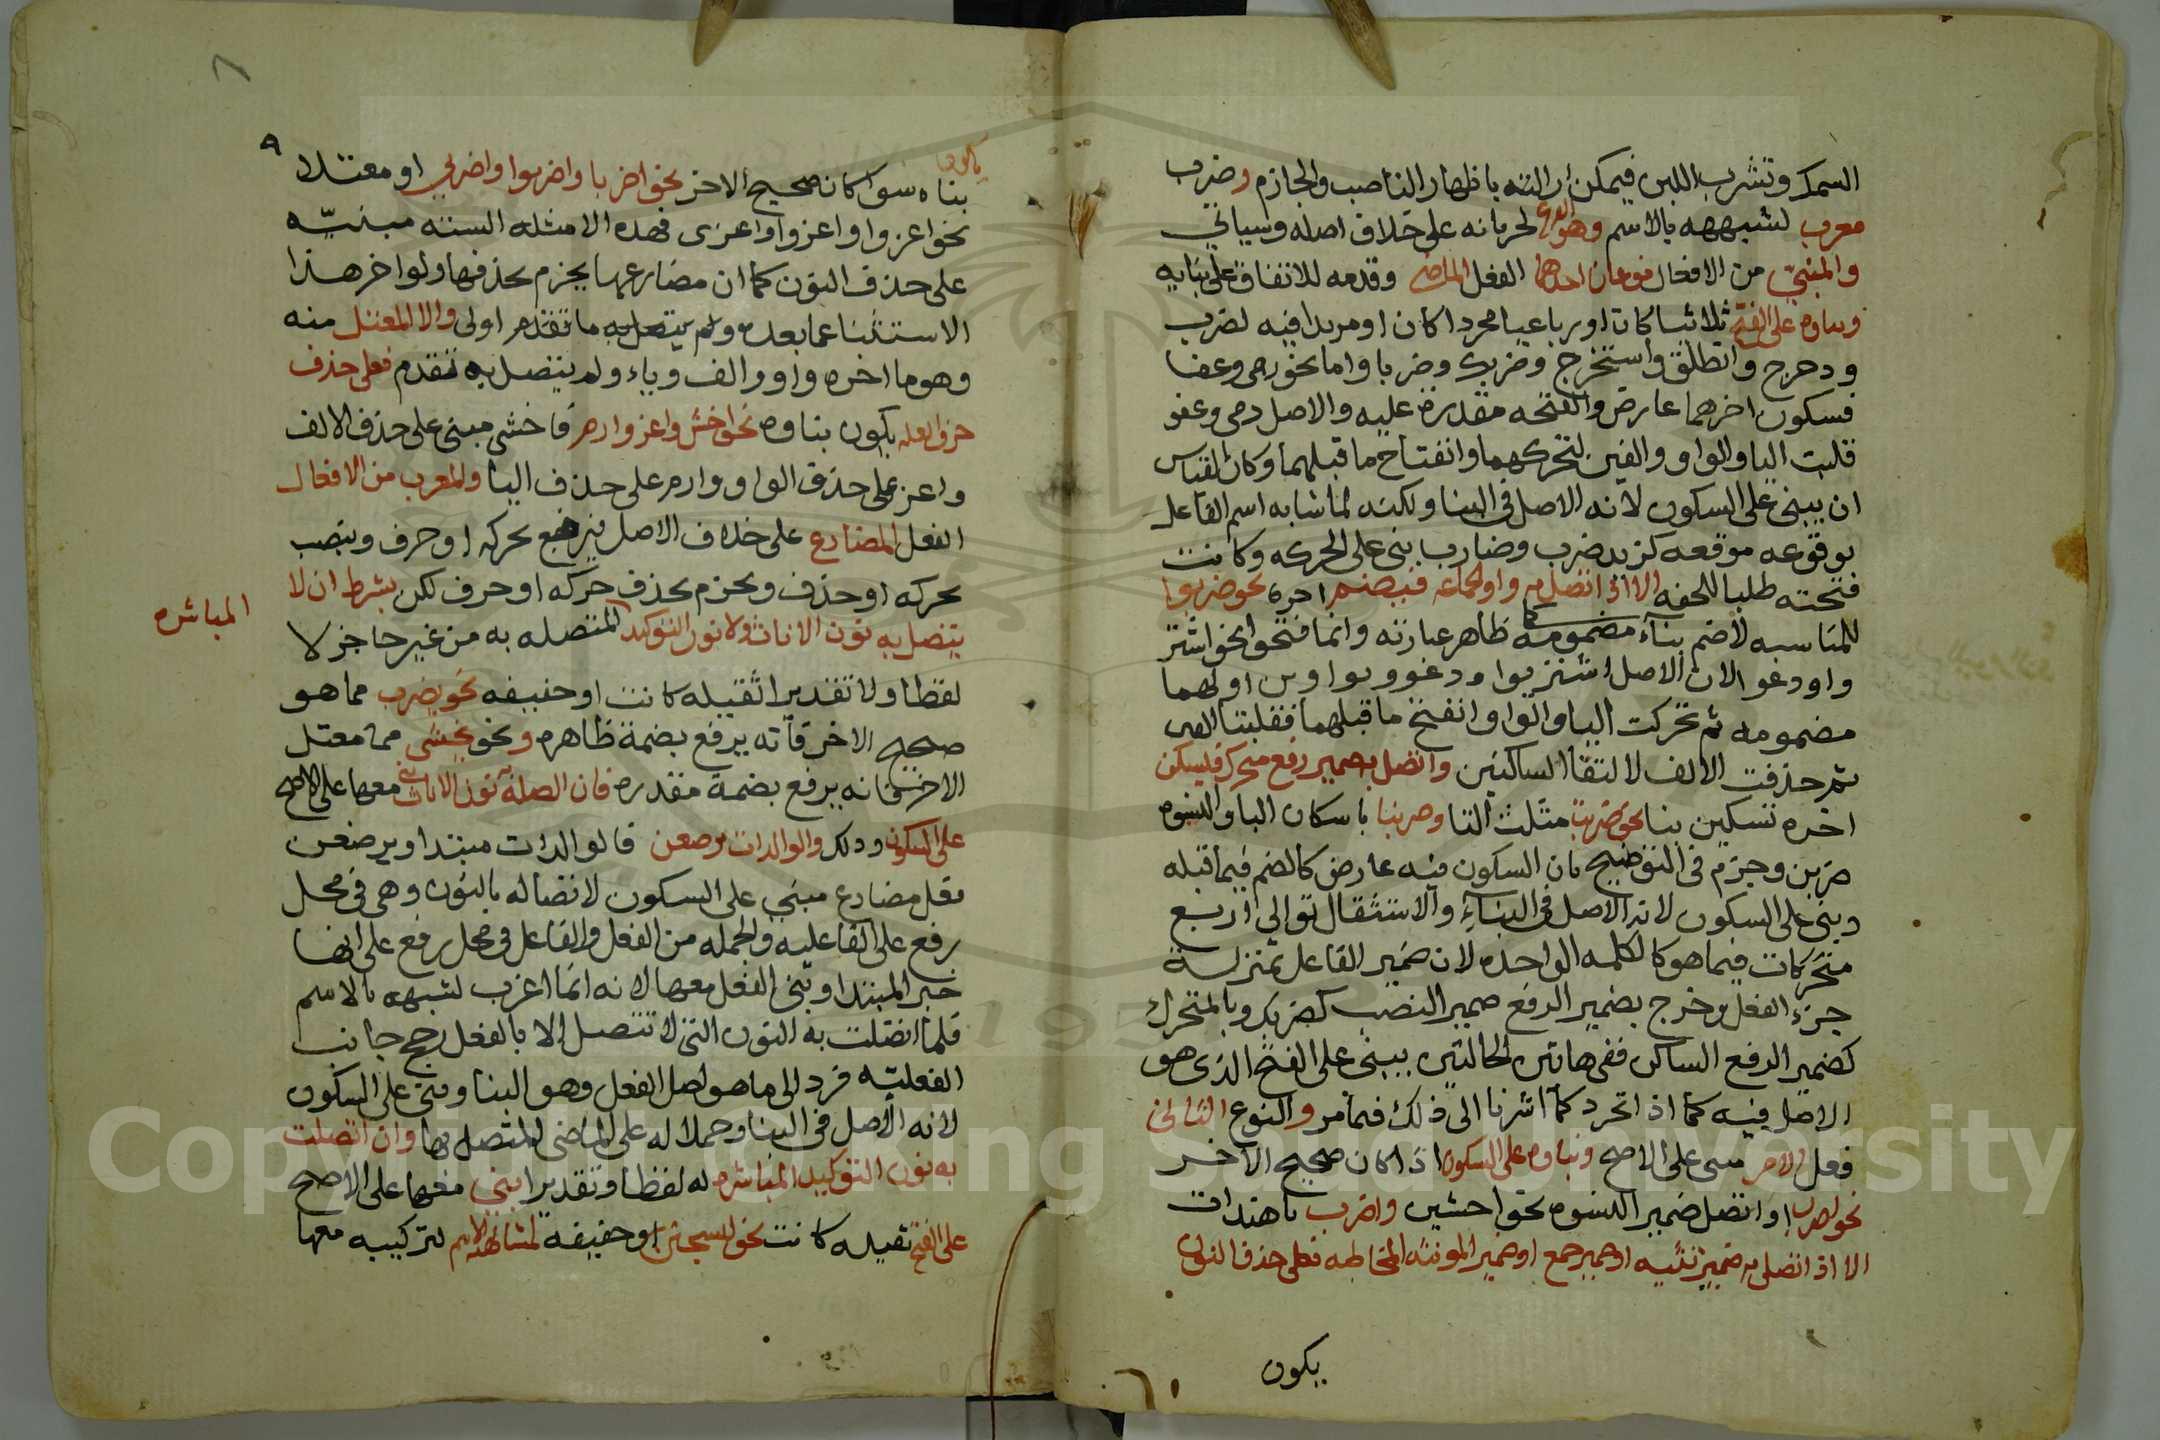 السمك وتشرب اللبن فيمكن ازالته باظهار الناصب والجازم وضرب
معرب لشبهه بالاسم وهو الفرع لجريانه على خلاف اصله وسياتي
والمبني من الافعال نوعان احدهما الفعل الماضي وقدمه للاتفاق على بنايه
وبناوه على الفتح ثلاثيا كان او رباعيا مجردا كان او مزيدا فيه لضرب
ودحرج وانطلق واستخرج وضربك وضربا واما نحو رمى وعفا
فسكون اخرهما عارض والفتحه مقدرة عليه والاصل رمي وعفو
قلبت اليا والواو والفين لتحركهما وانفتاح ما قبلهما وكان القياس
ان يبنى على السكون لانه الاصل في البنا ولكنه لما شابه اسم الفاعل
بوقوعه موقعه كزيد ضرب وضارب بني على الحركه وكانت
فتحته طلبا للخفه الا اذا اتصل به واو الجماعه فيضم اخره نحو ضربوا
للمناسبه لاضم بناء مضمومه كما ظاهر عبارته وانما فتحوا نحو اشتر
وا ودعوا لان الاصل اشتريوا ودعووا بواوين اولهما
مضمومه ثم تحركت اليا والواو وانفتح ما قبلهما فقلبتا الفا
ثم حذفت الالف لالتقا الساكنين واتصل به ضمير رفع متحرك فيسكن
اخره تسكين بنا نحو ضربت مثلث التا وضربنا باسكان البا والنسوه
ضربن وجزم في التوضيح بان السكون فيه عارض كالضم فيما قبله
وبني على السكون لانه الاصل في البناء والاستثقال توالي اربع
متحركات فيما هو كالكلمه الواحده لان ضمير الفاعل بمنزلة
جزء الفعل وخرج بضمير الرفع ضمير النصب كضربك وبالمتحرك
كضمير الرفع الساكن ففي هاتين الحالتين يبنى على الفتح الذي هو
الاصل فيه كما اذا تجرد كما اشرنا الى ذلك فيما مر والنوع الثاني
فعل الامر مبني على الاصح وبناوه على السكون اذا كان صحيح الآخر
نحو اضرب او اتصل ضمير النسوه نحو اخشين واضرب يا هندات
الا اذا اتصل به ضمير تثنيه او ضمير جمع او ضمير المونثه المخاطبه فعلى حذف النون
يكون
٩
يكون
بناه سوا كان صحيح الاخر نحو اضربا واضربوا واضربي او معتلا
نحو اغزوا واغزوا واغزى فهذه الامثله السته مبنيّه
على حذف النون كما ان مضارعها يجزم بحذفها ولو اخر هذا
الاستثنا عما بعده ولم يتصل به ما تقدم اولى والا المعتل منه
وهو ما اخره واو والف وياء ولم يتصل به تقدم فعلى حذف
حرف العله يكون بناوه نحو اخش واغز وارم فاخش مبني على حذف الالف
واغز على حذف الواو وارم على حذف اليا والمعرب من الافعال
الفعل المضارع على خلاف الاصل فيرفع بحركه او حرف وينصب
بحركه او حذف ويجزم بحذف حركه او حرف لكن بشرط ان لا
يتصل به نون الاناث ولا نون التوكيد المتصله به من غير حاجز لا
المباشره
لفظا ولا تقديرا ثقيله كانت او خفيفه نحو يضرب مما هو
صحيح الاخر فانه يرفع بضمة ظاهره ونحو يخشى مما معتل
الاخر فانه يرفع بضمة مقدره فان اتصل به نون الاناث بني معها على الاصح
على السكون وذلك والوالدات يرضعن فالوالدات مبتدا ويرضعن
فعل مضارع مبني على السكون لاتصاله بالنون وهي في محل
رفع على الفاعليه والجمله من الفعل والفاعل في محل رفع على انها
خبر المبتدا وبني الفعل معها لانه انما اعرب لشبهه بالاسم
فلما اتصلت به النون التي لا تتصل الا بالفعل رجح جانب
الفعليّه فرد الى ما هو اصل الفعل وهو البنا وبني على السكون
لانه الأصل في البنا وحملا له على الماضي المتصل بها وان اتصلت
به نون التوكيد المباشره له لفظا وتقديرا بني معها على الاصح
على الفتح ثقيله كانت نحو ليسجنن او خفيفه لمشابهة الاسم لتركيبه معها